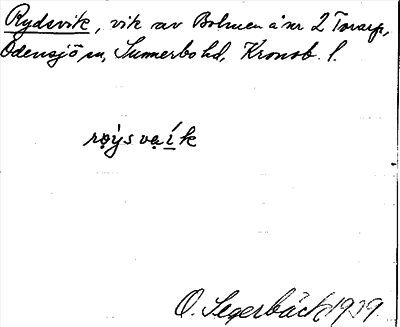 Rydsvik, vik av Bolmen å nr 2 Torarp,
Odensjö sn, Sunnerbo hd, Kronob. l.
rø̣ýsvạík
O. Segerbäck 1939.